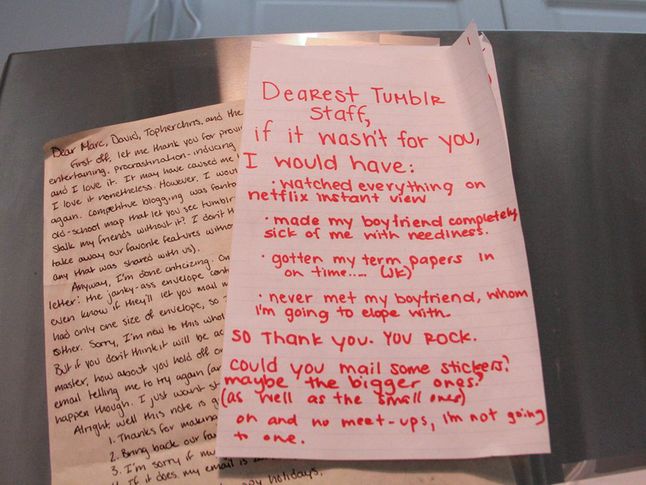 Dear Marc, David, Topherchris, and the
First off, let me thank you for provi
entertaining, procrastination-inducing
and I love it. It may have caused me
I love it nonetheless. However, I wou
again. Competitive blogging was fanta
old-school map that let you see tumblr
stalk my friends without it? I don't
take away our favorite features witho
any that was shared with us).
Anyway, I'm done criticizing. On
letter: the janky-ass envelope cont
even know if they'll let you mail
had only one size of envelope, so
other. Sorry, I'm new to this whol
But if you don't think it will be ac
master, how about you hold off on
email telling me to try again (an
happen though. I just want st
Alright well this note is g
1. Thanks for making
2. Bring back our fa
3. I'm sorry if my
4. If it does, my email is
happy holidays,
Dearest Tumblr
Staff,
if it wasn't for you,
I would have:
· watched everything on
netflix instant view
· made my boyfriend completely
sick of me with neediness.
· gotten my term papers in
on time..... (jk)
· never met my boyfriend, whom
I'm going to elope with.
SO Thank you. YOU ROCK.
could you mail some stickers?
maybe the bigger ones?
(as well as the small ones)
oh and no meet-ups, I'm not going
to one.